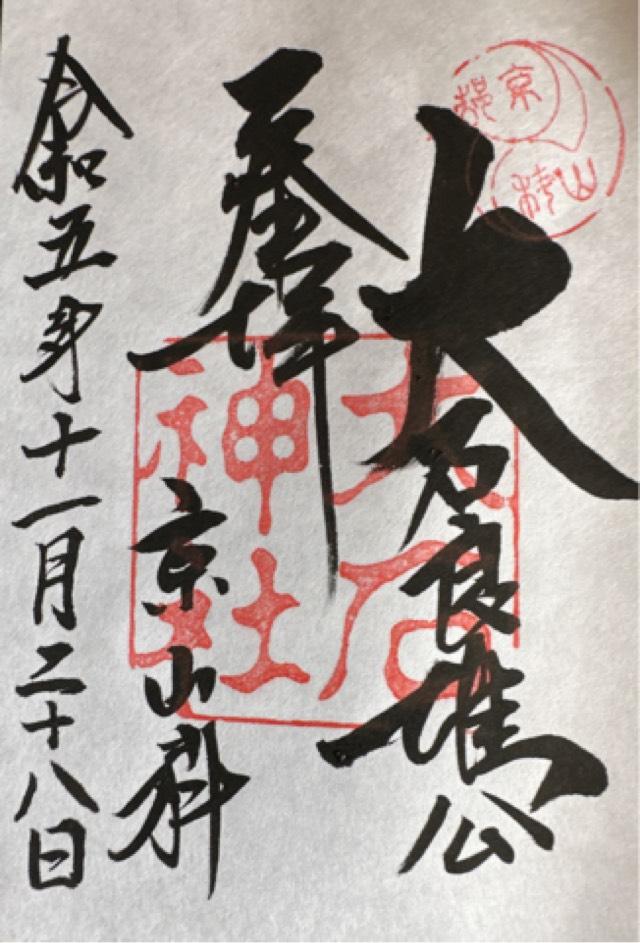 京都
山科
大石良雄公
奉拝
大石神社
京山科
令和五年十一月二十八日